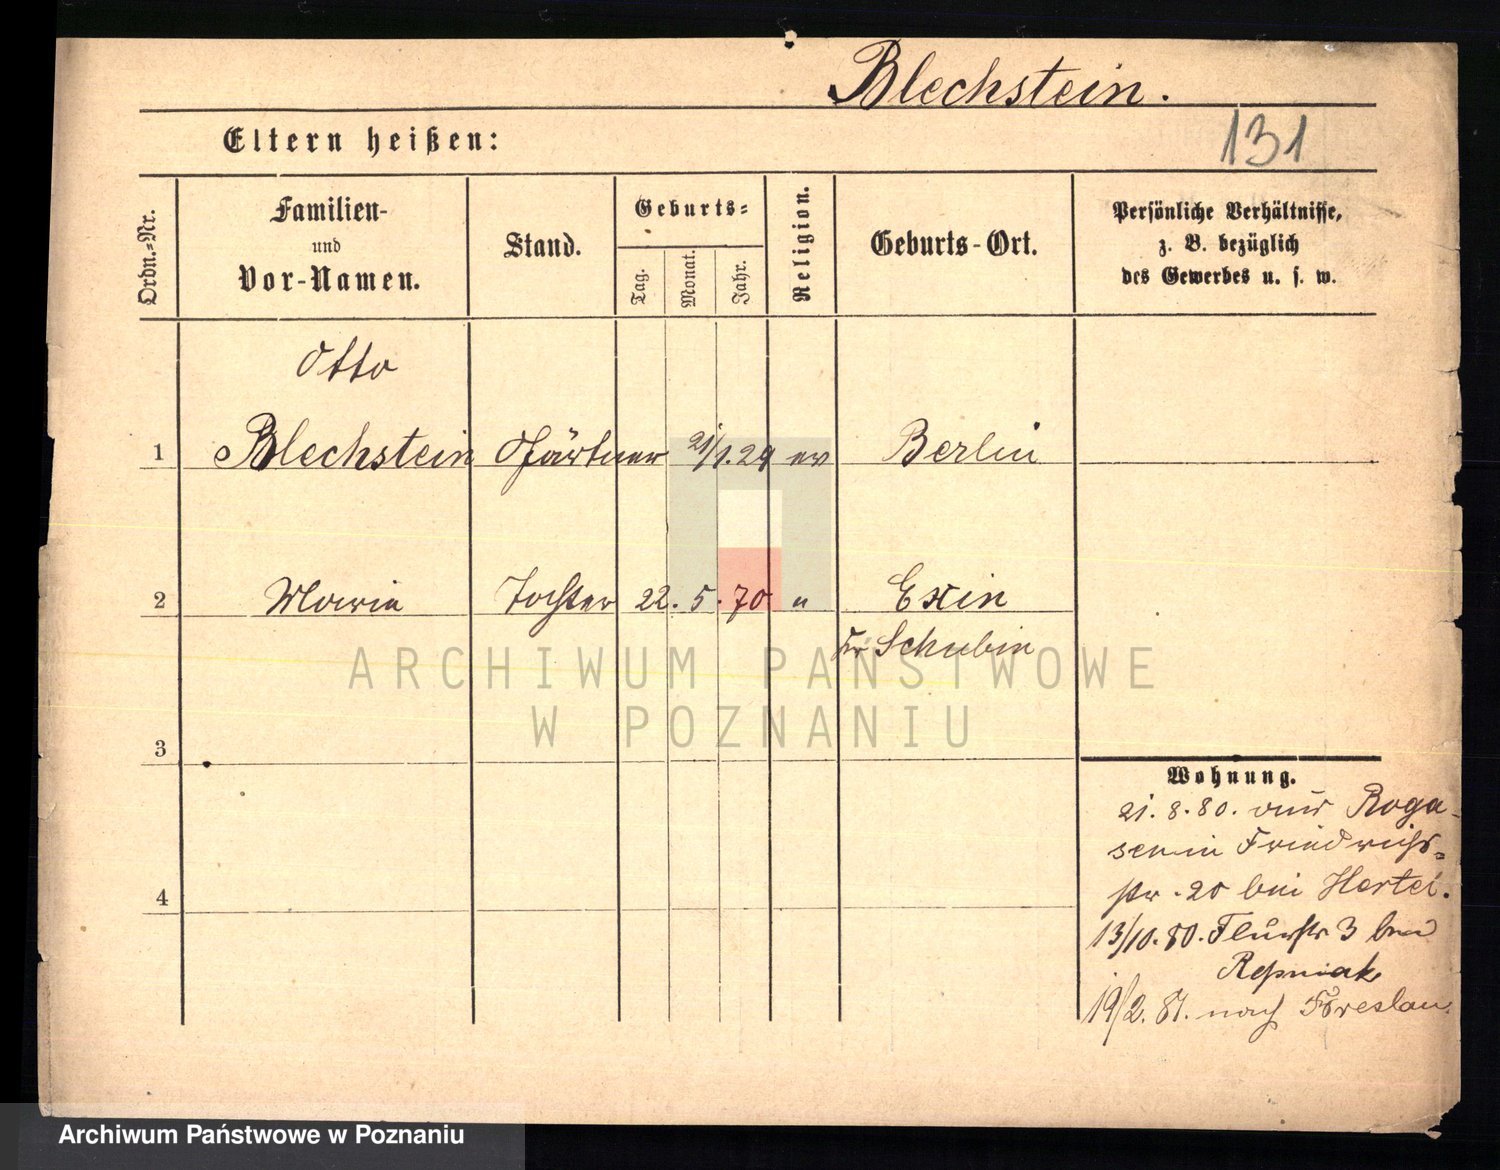 Blechstein.
131
Eltern heißen:
Ordn.-Nr.
Familien-
und
Vor-Namen.
Stand.
Geburts-
Tag.
Monat.
Jahr.
Religion.
Geburts-Ort.
Persönliche Verhältnisse,
z. B. bezüglich
des Gewerbes u. s. w.
Otto
1 Blechstein Gärtner 21/1.29 ev Berlin
2 Marie Tochter 22. 5. 70 " Exin
Kr Schubin
3
4
Wohnung.
21. 8. 80. aus Roga-
sen in Friedrichs-
str. 20 bei Hertel.
13/10. 80. Flurstr 3 bei
19/2. 81. nach Breslau.
ARCHIWUM PAŃSTWOWE
W POZNANIU
Archiwum Państwowe w Poznaniu